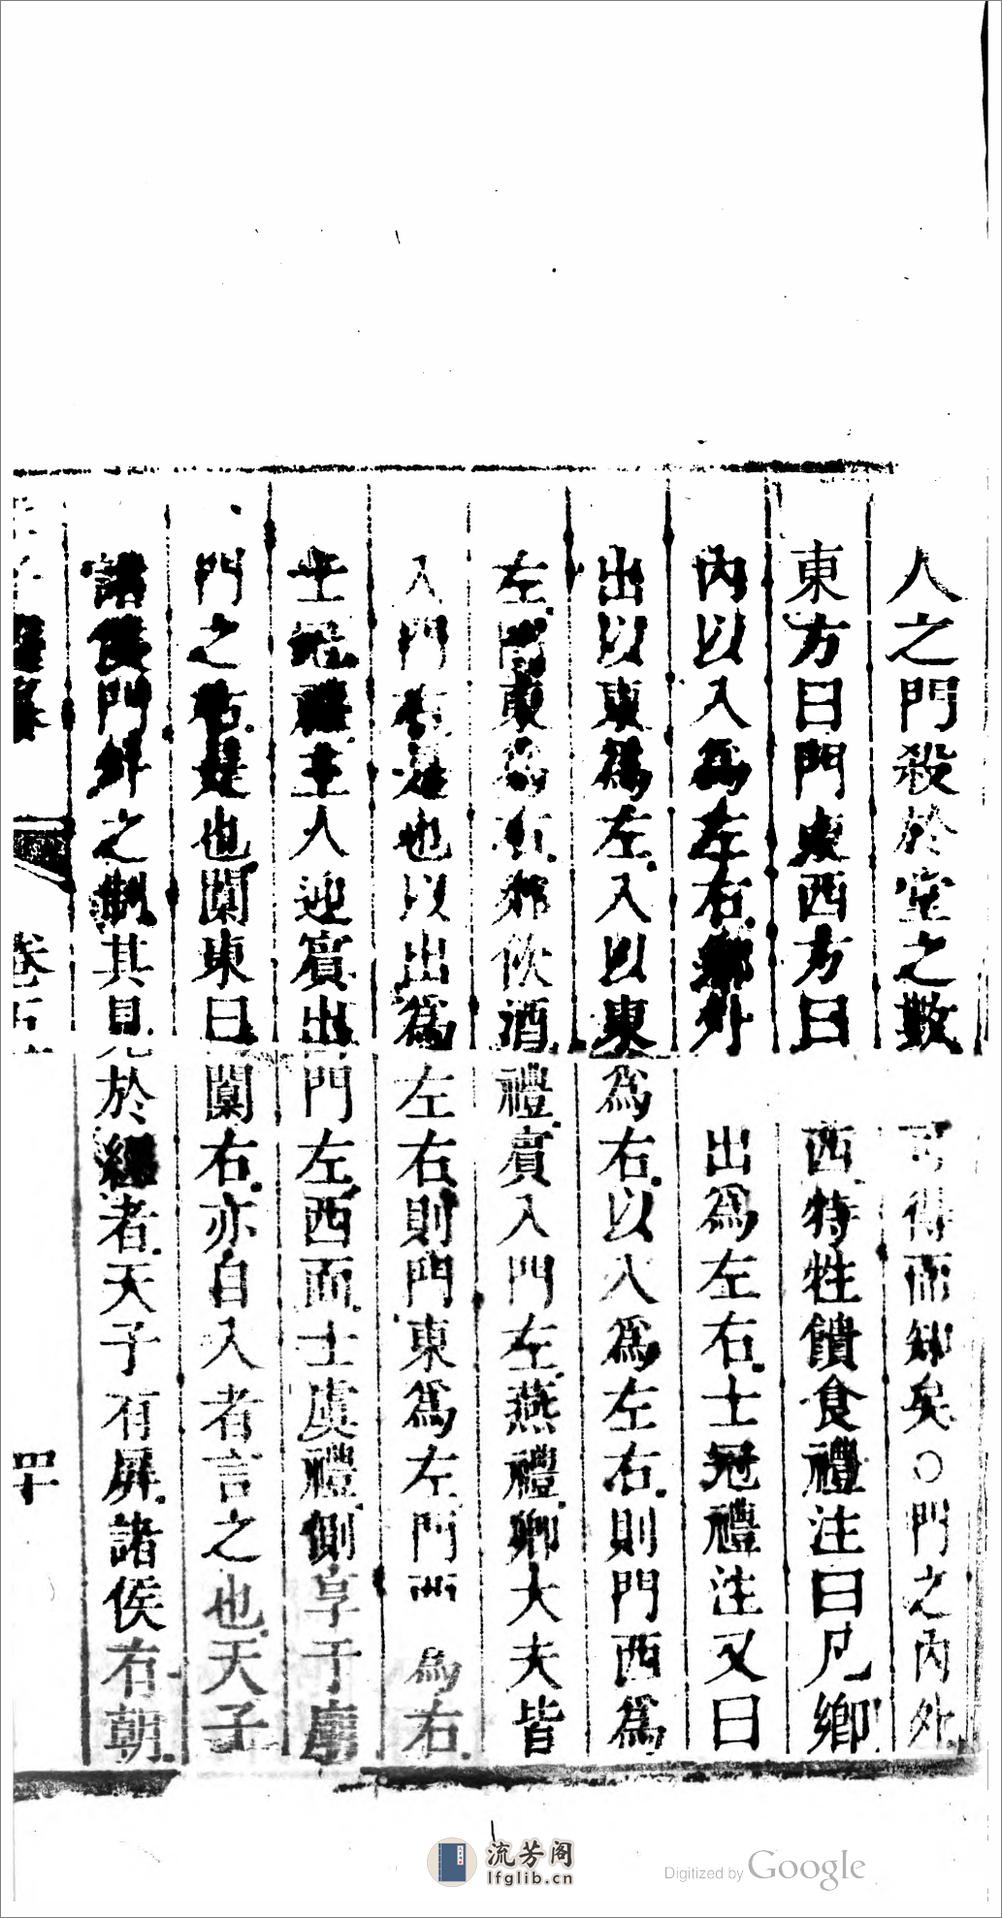 人之門殺於堂之數可得而知矣○門之內外
東方曰門東西方曰西特牲饋食禮注曰凡鄉
內以入為左右鄉外出為左右士冠禮注又曰
出以東為左入以東為右以入為左右則門西為
左門東為右鄉飲酒禮賓入門左燕禮卿大夫皆
入門右是也以出為左右則門東為左門西為右
士冠禮主人迎賓出門左西面士虞禮側享于廟
門之右是也闑東曰闑右亦自入者言之也天子
諸侯門外之制其見於經者天子有屏諸侯有朝
卷五
四十
流芳阁
lfglib.cn
Digitized by Google